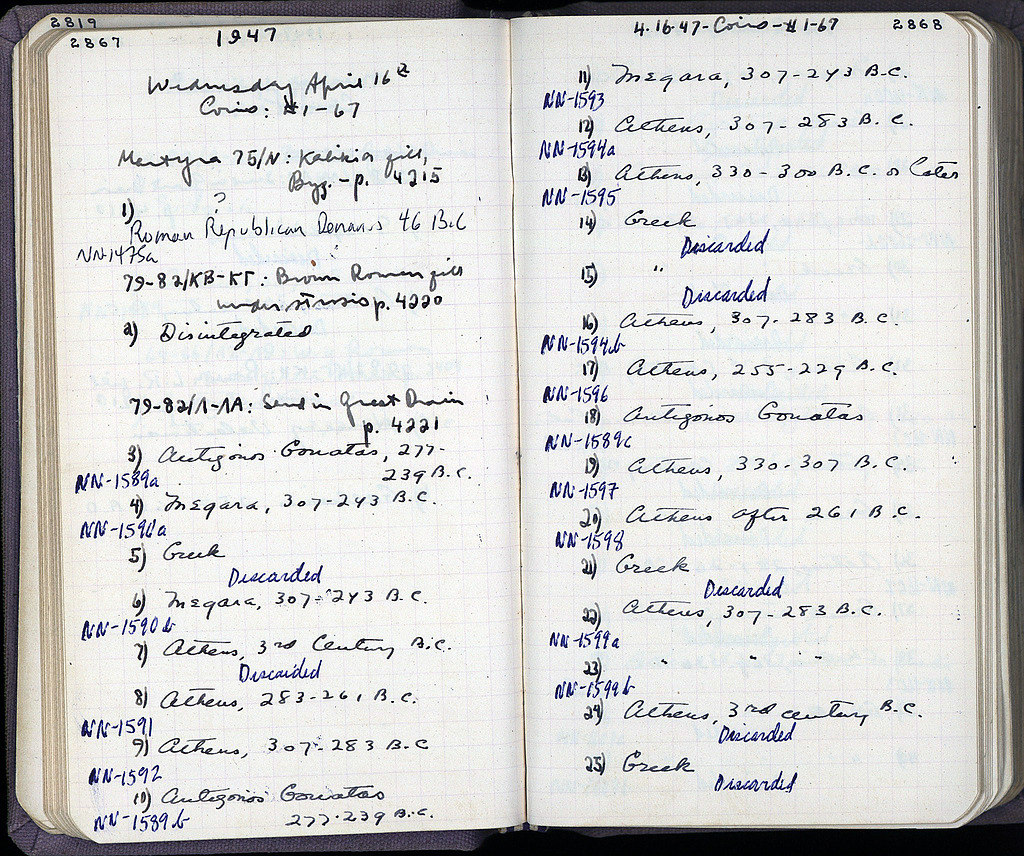 2819
2867
1947
Wednesday April 16th
Coins: #1-67
75/N: fill,
Byz. - p. 4215
?
1)
Roman Republican Denarius 46 B.C
NN-1475a
79-82/KB-KΓ: Brown Roman fill
under p. 4220
2) Disintegrated
79-82/Λ-ΛΑ: Sand in Great Drain
p. 4221
3) Antigonos Gonatas, 277-
239 B.C.
NN-1589a
4) Megara, 307-243 B.C.
NN-1590a
5) Greek
Discarded
6) Megara, 307-243 B.C.
NN-1590b
7) Athens, 3rd Century B.C.
Discarded
8) Athens, 283-261 B.C.
NN-1591
9) Athens, 307-283 B.C
NN-1592
10) Antigonos Gonatas
277-239 B.C.
NN-1589b
4-16-47-Coins-#1-67
2868
11) Megara, 307-243 B.C.
NN-1593
12) Athens, 307-283 B.C.
NN-1594a
13) Athens, 330-300 B.C. or later
NN-1595
14) Greek
Discarded
15) "
Discarded
16) Athens, 307-283 B.C.
NN-1594b
17) Athens, 255-229 B.C.
NN-1596
18) Antigonos Gonatas
NN-1589c
19) Athens, 330-307 B.C.
NN-1597
20) Athens after 261 B.C.
NN-1598
21) Greek
Discarded
22) Athens, 307-283 B.C.
NN-1599a
23) " " "
NN-1599b
24) Athens, 3rd century B.C.
Discarded
25) Greek
Discarded